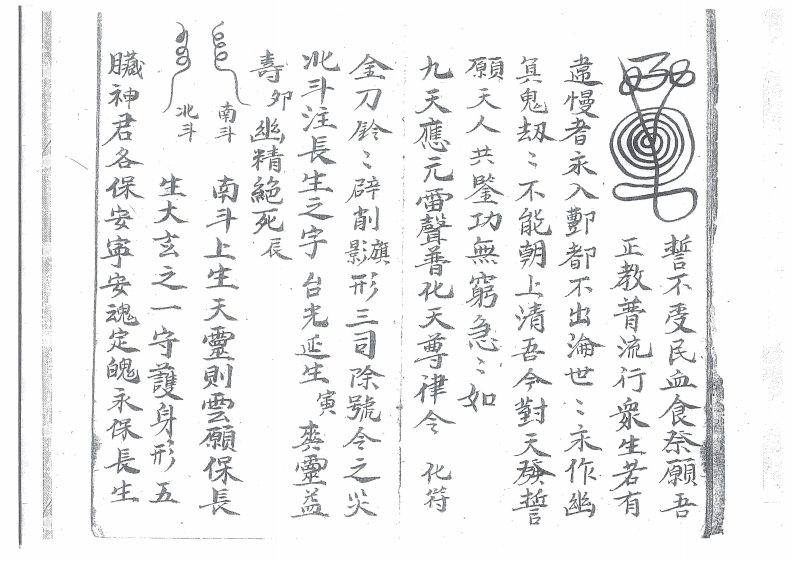 誓不受民血食祭願吾
正教普流行衆生若有
違慢者永入酆都不出淪世〻永作幽
冥鬼劫〻不能朝上清吾今對天發誓
願天人共鑒功無窮急〻如
九天應元雷聲普化天尊律令 化符
金刀鈴〻辟削旗影形三司除號令之災
北斗注長生之字 台光延生寅 爽靈益
壽卯 幽精絕死辰
南斗
北斗
南斗上生天靈則雲願保長
生大玄之一守護身形五
臟神君各保安寧安魂定魄永保長生